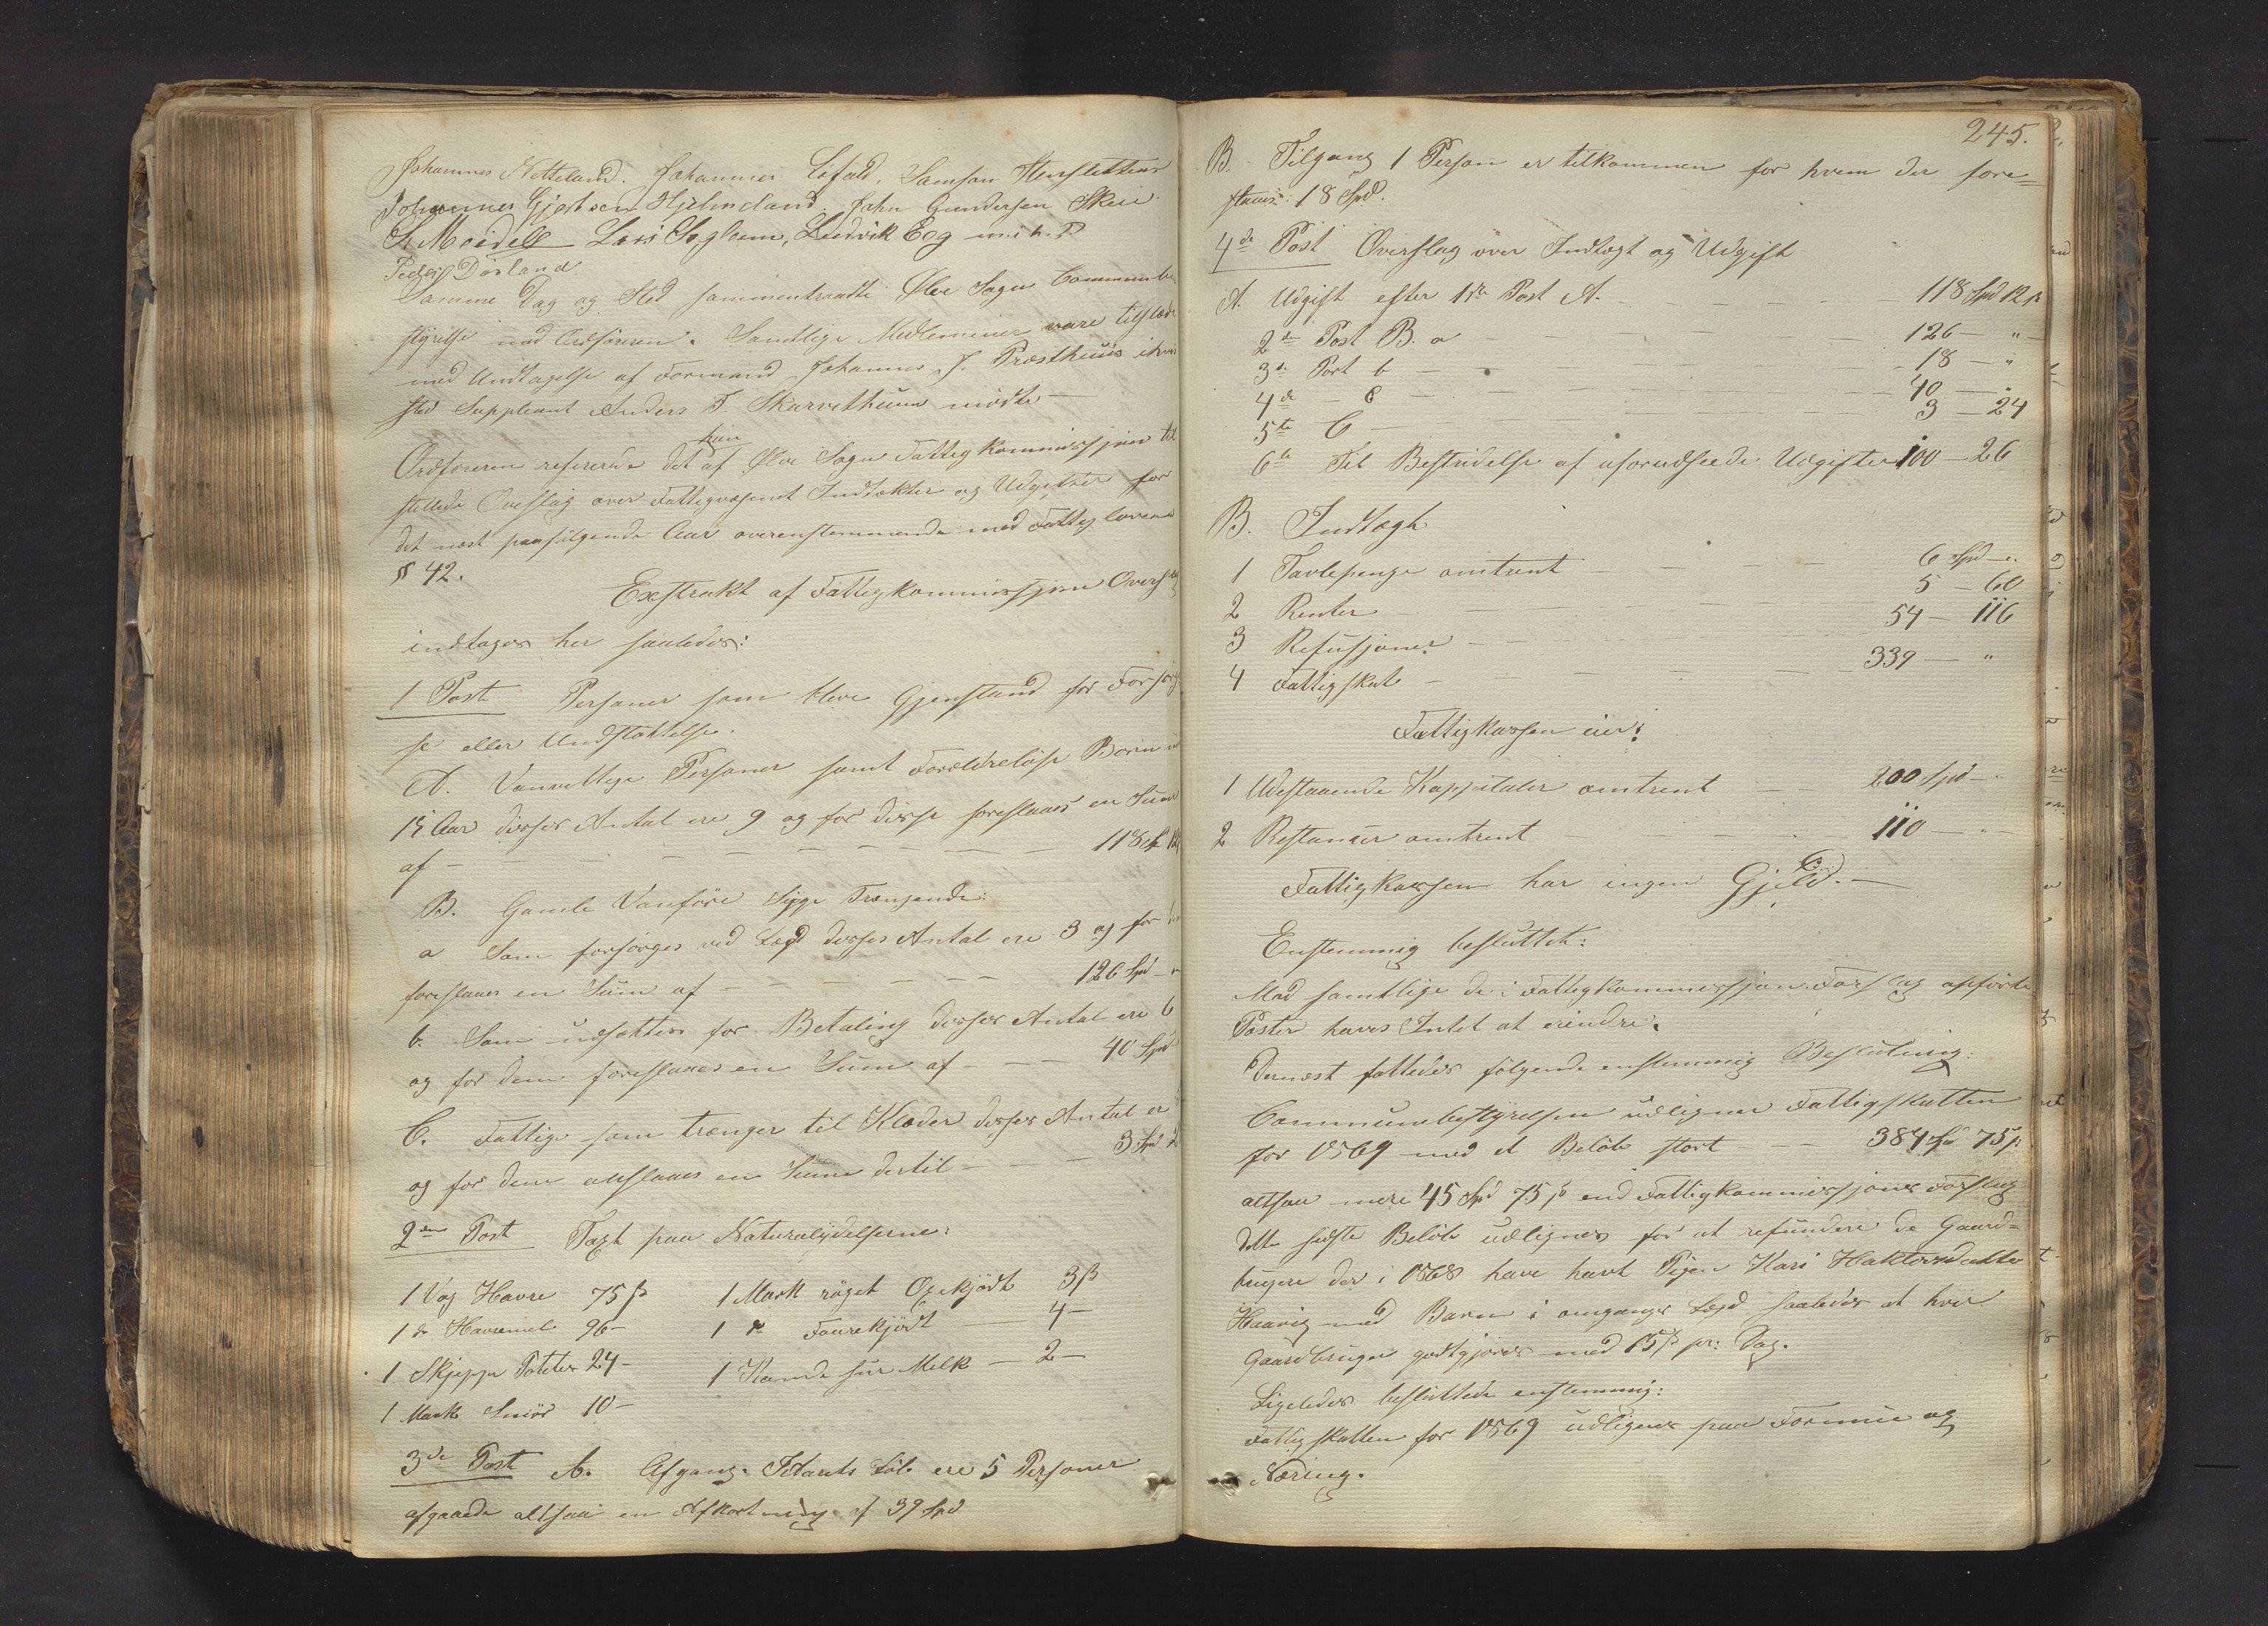 Johannes Netteland. Johannes Lofald, Samson Henslettene
Johannes Gjertsen Hjelmeland. John Gundersen Skeie
Meidell Lars Sogheim, Ludvik Eeg m. i. h. P
Peder Dørland.
Samme Dag og Sted sammentraadte Ølve Sogns Communebe
styrelse med Ordføreren. Samtlige Medlemmer vare tilstæde
med Undtagelse af Formand Johannes J. Præsthuus i hvis
sted Suppleant Anders T. Skarvethuun mødte -
Ordføreren refererede det af hin Ølve Sogns Fattigkommissjon til
stillede Overslag over Fattigvæsenet Indtækter og Udgifter for
det næst paafølgende Aar overenstemmende med Fattiglovens
§ 42.
Exstrakt af Fattigkommissjons Overslag
indtages her saaledes:
1 Post Personer som blive Gjenstand for Forsørg
se eller Understøttelse.
A. Vanvittige Personer samt Forældreløse Børn u
15 Aar disses Antal ere 9 og for disse foreslaaes en Sum
af - - - - - - - - 118 Sp 12
B. Gamle Vanføre Syge Trængende:
a Som forsørges ved Lægd disses Antal ere 3 og for
foreslaaes en Sum af - - - - - - 126 Spd - "
b. Som udsættes for Betaling disses Antal ere 6
og for dem foreslaaes en Sum af - - - 40 Spd
C. Fattige som trænger til Klæder disses Antal er
og for dem anslaaes en Sum dertil - - - 3 Spd 2
2den Post Taxt paa Naturalydelserne:
1 Vog Havre 75 ß 1 Mark røget Oxekjødt 3 ß
1 do Havremel 96 - 1 do Faarekjødt - 4 -
1 Skjeppe Poteter 24 - 1 Kande sur Melk - 2 -
1 Mark Smør 10 -
3de Post A. Afgang. I Aarets Løb ere 5 Personer
afgaaede altsaa en Afkortning af 39 Spd
245.
B. Tilgang 1 Person er tilkommen for hvem der fore=
slaaes 18 Spd.
4de Post Overslag over Indtægt og Udgift
A. Udgift efter 1ste Post A. - - - - 118 Spd 12 ß
2de Post B. a - - - - 126 - " -
3de Post b - - - - 18 - "
4de - C - - - - 40 - "
5te C - - - - 3 - 24
6te Til Bestridelse af uforudseede Udgifter 100 - 26
B. Indtægt
1 Tavlepenge omtrent - - - 6 Spd - "
2 Renter - - - - 5 - 60
3 Refusjoner - - - - 54 - 116
4 Fattigskat - - - - 339 - "
Fattigkassen eier:
1 Udestaaende Kappitaler omtrent - - 200 Spd - "
2 Restancer omtrent - - - 110 - " -
Fattigkassen har ingen Gjeld. -
Enstemmig besluttet:
Mod samtlige de i Fattigkommissjons Forslag opførte
Poster haves Intet at erindre.
Dernæst fattedes følgende enstemmig Beslutning:
Communebestyrelsen udligner Fattigskatten
for 1869 med et Beløb stort - - 384 Sp 75 ß
altsaa mere 45 Spd 75 ß end Fattigkommissjons Forslag
dette sidste Beløb udlignes for at refundere de Gaard=
brugere der i 1868 have havt Pigen Kari Haktorsdatter
Haavig med Barn i omgangs Lægd saaledes at hver
Gaardbruger godtgjøres med 15 ß pr: Dag.
Ligeledes besluttede enstemmig:
Fattigskatten for 1869 udlignes paa Formue og
Næring.